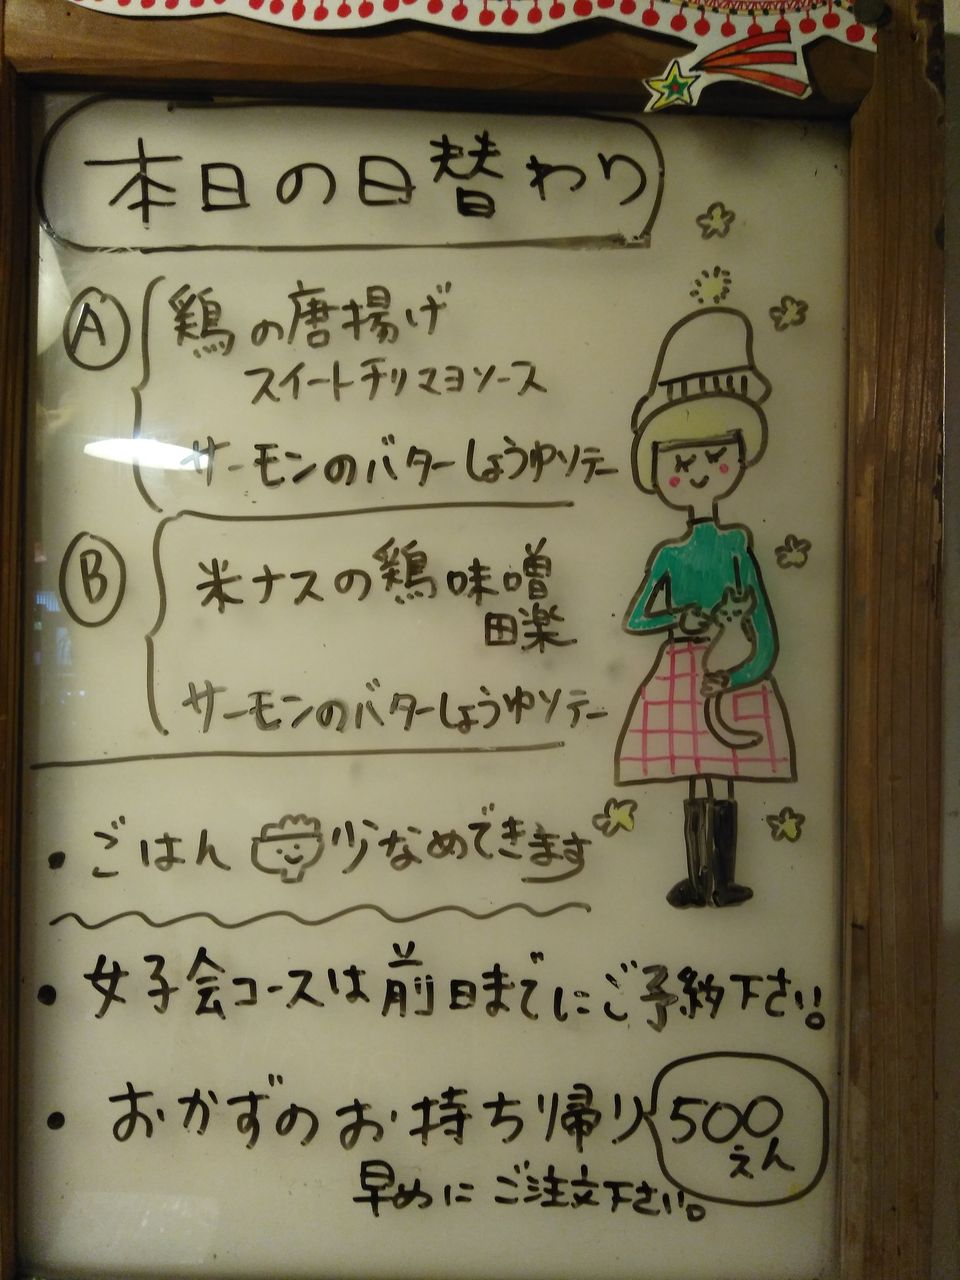 本日の日替わり
A 鶏の唐揚げ
スイートチリマヨソース
サーモンのバターしょうゆソテー
B 米ナスの鶏味噌
田楽
サーモンのバターしょうゆソテー
・ごはん 少なめできます
・女子会コースは前日までにご予約下さい。
・おかずのお持ち帰り 500
えん
早めにご注文下さい。